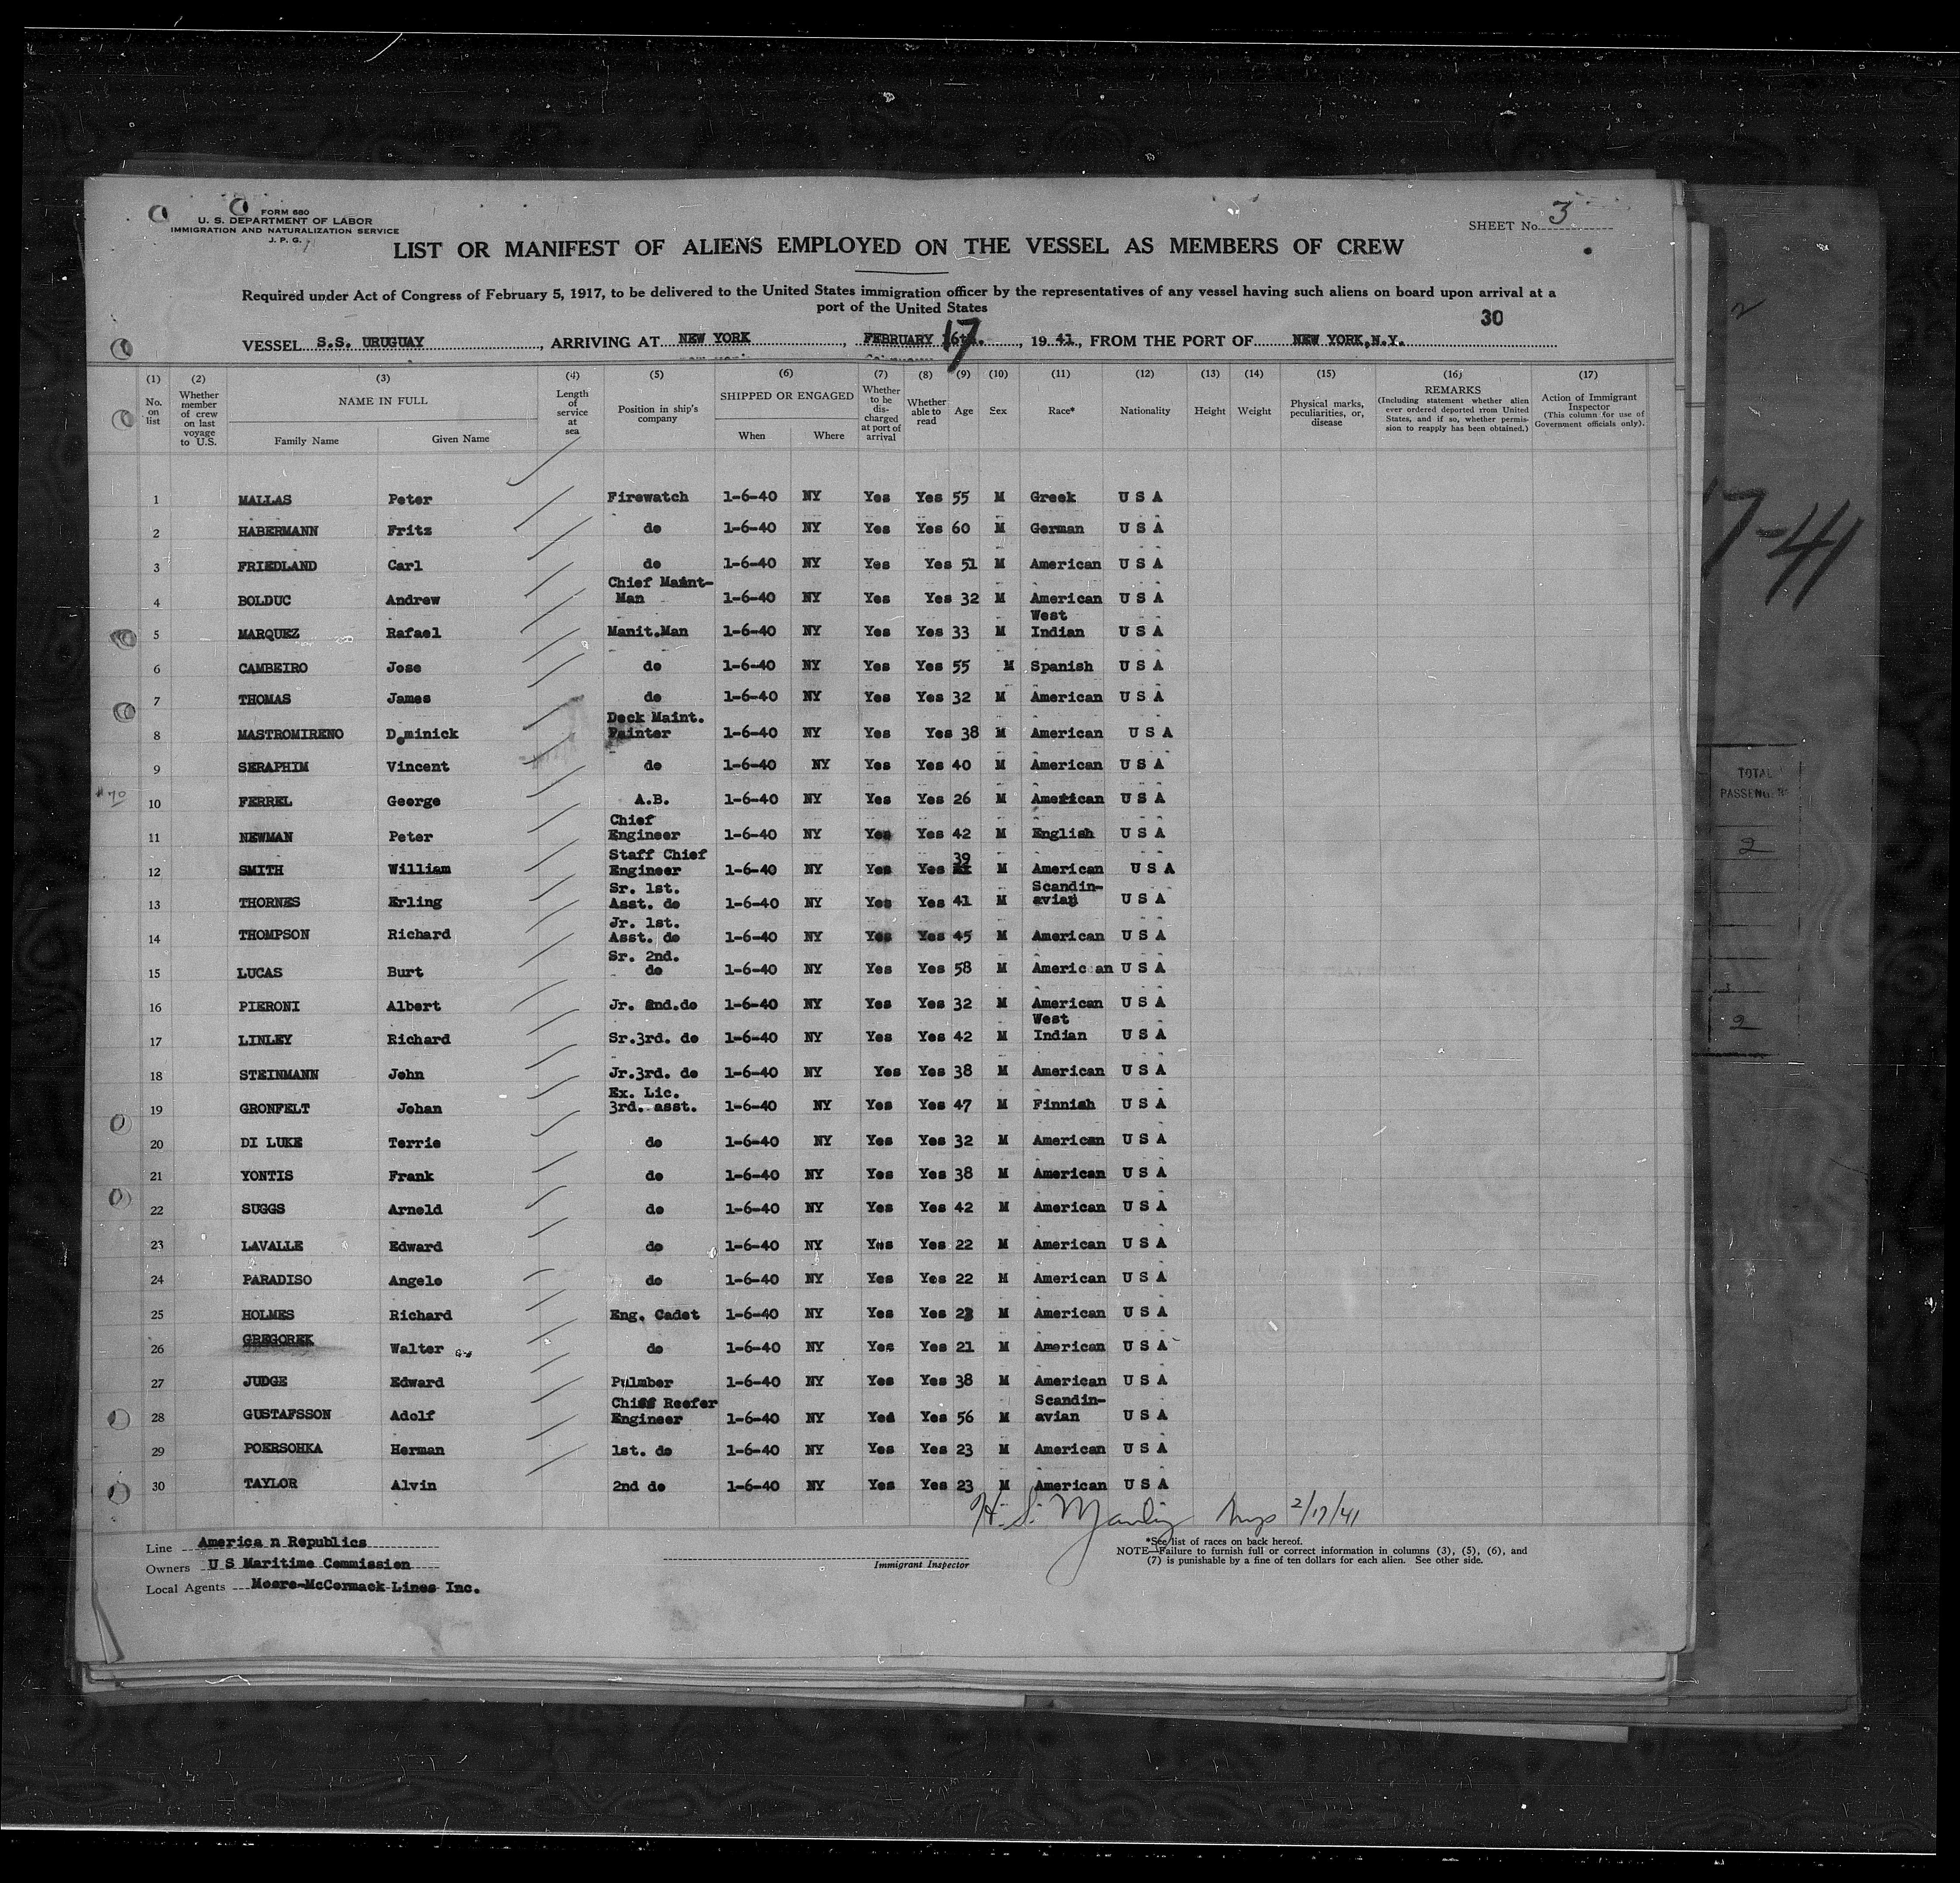 FORM 680
U. S. DEPARTMENT OF LABOR
IMMIGRATION AND NATURALIZATION SERVICE
J. P. G.
SHEET No. 3
LIST OR MANIFEST OF ALIENS EMPLOYED ON THE VESSEL AS MEMBERS OF CREW
Required under Act of Congress of February 5, 1917, to be delivered to the United States immigration officer by the representatives of any vessel having such aliens on board upon arrival at a
port of the United States
30
VESSEL S.S. URUGUAY, ARRIVING AT NEW YORK, FEBRUARY 17, 1941, FROM THE PORT OF NEW YORK,N.Y.
(1) No. on list
(2) Whether member of crew on last voyage to U.S.
(3) NAME IN FULL Family Name Given Name
(4) Length of service at sea
(5) Position in ship's company
(6) SHIPPED OR ENGAGED When Where
(7) Whether to be discharged at port of arrival
(8) Whether able to read
(9) Age
(10) Sex
(11) Race*
(12) Nationality
(13) Height
(14) Weight
(15) Physical marks, peculiarities, or, disease
(16) REMARKS (Including statement whether alien ever ordered deported from United States, and if so, whether permission to reapply has been obtained.)
(17) Action of Immigrant Inspector (This column for use of Government officials only).
1 MALLAS Peter Firewatch 1-6-40 NY Yes Yes 55 M Greek U S A
2 HABERMANN Fritz do 1-6-40 NY Yes Yes 60 M German U S A
3 FRIEDLAND Carl do 1-6-40 NY Yes Yes 51 M American U S A
4 BOLDUC Andrew Chief Maint-Man 1-6-40 NY Yes Yes 32 M American U S A
5 MARQUEZ Rafael Manit.Man 1-6-40 NY Yes Yes 33 M West Indian U S A
6 CAMBEIRO Jose do 1-6-40 NY Yes Yes 55 M Spanish U S A
7 THOMAS James do 1-6-40 NY Yes Yes 32 M American U S A
8 MASTROMIRENO Dominick Deck Maint. Painter 1-6-40 NY Yes Yes 38 M American U S A
9 SERAPHIM Vincent do 1-6-40 NY Yes Yes 40 M American U S A
10 FERREL George A.B. 1-6-40 NY Yes Yes 26 M American U S A
11 NEWMAN Peter Chief Engineer 1-6-40 NY Yes Yes 42 M English U S A
12 SMITH William Staff Chief Engineer 1-6-40 NY Yes Yes 39 M American U S A
13 THORNES Erling Sr. 1st. Asst. do 1-6-40 NY Yes Yes 41 M Scandin-avian U S A
14 THOMPSON Richard Jr. 1st. Asst. do 1-6-40 NY Yes Yes 45 M American U S A
15 LUCAS Burt Sr. 2nd. do 1-6-40 NY Yes Yes 58 M American U S A
16 PIERONI Albert Jr. 2nd.do 1-6-40 NY Yes Yes 32 M American U S A
17 LINLEY Richard Sr.3rd. do 1-6-40 NY Yes Yes 42 M West Indian U S A
18 STEINMANN John Jr.3rd. do 1-6-40 NY Yes Yes 38 M American U S A
19 GRONFELT Johan Ex. Lic. 3rd. asst. 1-6-40 NY Yes Yes 47 M Finnish U S A
20 DI LUKE Terrie do 1-6-40 NY Yes Yes 32 M American U S A
21 YONTIS Frank do 1-6-40 NY Yes Yes 38 M American U S A
22 SUGGS Arnold do 1-6-40 NY Yes Yes 42 M American U S A
23 LAVALLE Edward do 1-6-40 NY Yes Yes 22 M American U S A
24 PARADISO Angelo do 1-6-40 NY Yes Yes 22 M American U S A
25 HOLMES Richard Eng. Cadet 1-6-40 NY Yes Yes 23 M American U S A
26 GREGOREK Walter do 1-6-40 NY Yes Yes 21 M American U S A
27 JUDGE Edward Pulmber 1-6-40 NY Yes Yes 38 M American U S A
28 GUSTAFSSON Adolf Chieff Reefer Engineer 1-6-40 NY Yes Yes 56 M Scandin-avian U S A
29 POERSOHKA Herman 1st. do 1-6-40 NY Yes Yes 23 M American U S A
30 TAYLOR Alvin 2nd do 1-6-40 NY Yes Yes 23 M American U S A
H. S. 2/17/41
Line America n Republics
Owners U S Maritime Commission
Local Agents Moore-McCormack Lines Inc.
Immigrant Inspector
*See list of races on back hereof.
NOTE—Failure to furnish full or correct information in columns (3), (5), (6), and
(7) is punishable by a fine of ten dollars for each alien. See other side.
7-41
TOTAL
PASSENGERS
2
2